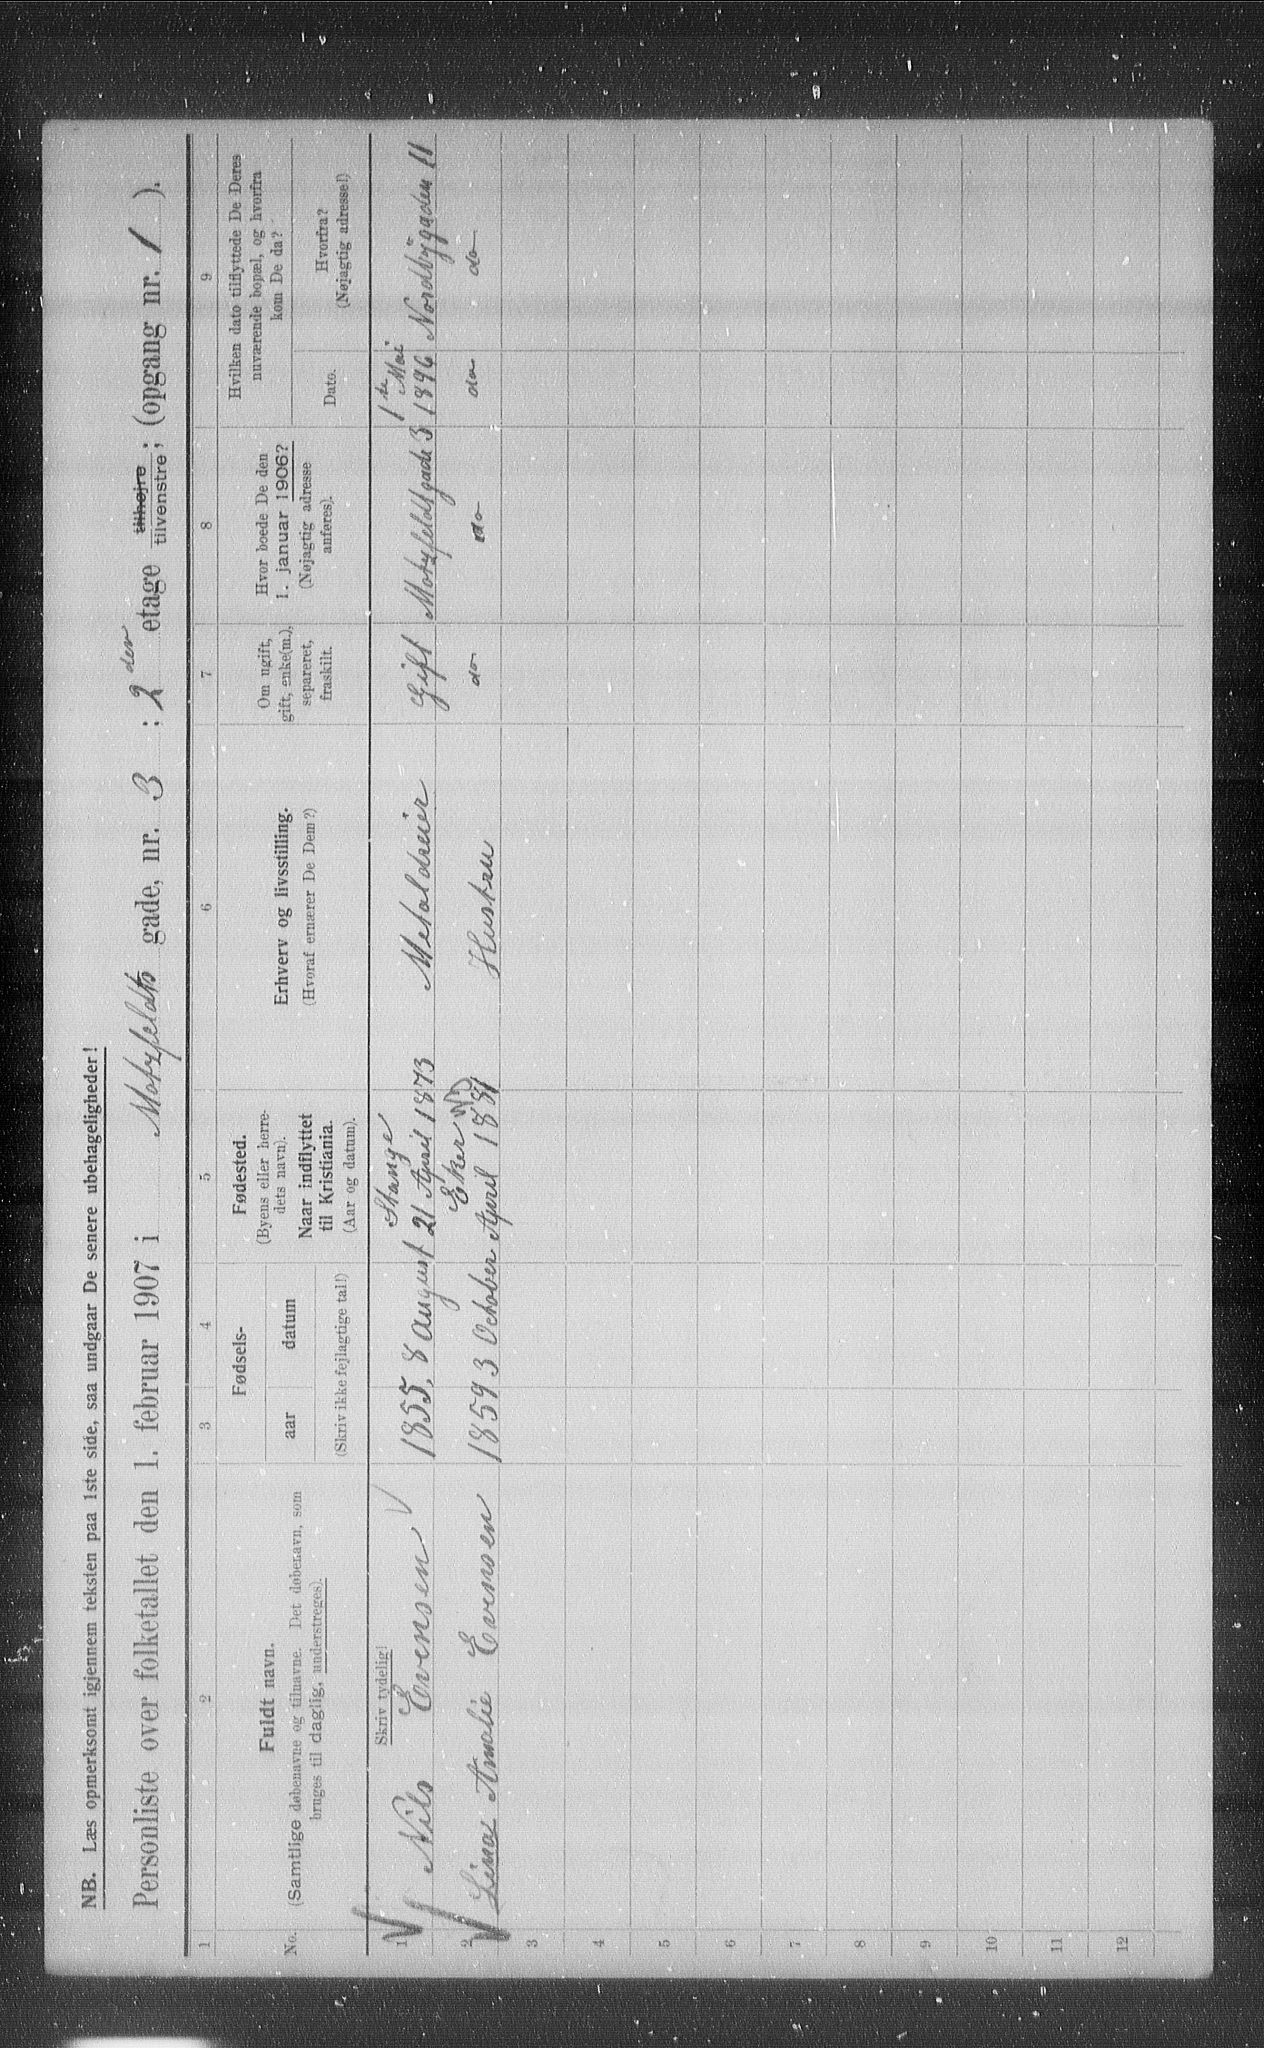 NB. Læs opmerksomt igjennem teksten paa 1ste side, saa undgaar De senere ubehageligheder!
Personliste over folketallet den 1. februar 1907 i Motzfeldts gade, nr. 3 : 2 den etage tilhøjre tilvenstre; (opgang nr. 1 ).
1 2 3 4 5 6 7 8 9
No.
Fuldt navn.
(Samtlige døbenavne og tilnavne. Det døbenavn, som
bruges til daglig, understreges).
Fødsels-
aar datum
(Skriv ikke fejlagtige tal!)
Fødested.
(Byens eller herre-
dets navn).
Naar indflyttet
til Kristiania.
(Aar og datum).
Erhverv og livsstilling.
(Hvoraf ernærer De Dem?)
Om ugift,
gift, enke(m.),
separeret,
fraskilt.
Hvor boede De den
1. januar 1906?
(Nøjagtig adresse
anføres).
Hvilken dato tilflyttede De Deres
nuværende bopæl, og hvorfra
kom De da?
Dato.
Hvorfra?
(Nøjagtig adresse!)
Skriv tydelig!
Stange 1te Mai
1 Nils Evensen 1855, 8 August 21 April 1873 Metaldreier Gift Motzfeldtsgade 3 1896 Nordbygaden 11
Eker
2 Lina Amalie Evensen 1859 3 October April 1881 Hustru do do do do
3
4
5
6
7
8
9
10
11
12